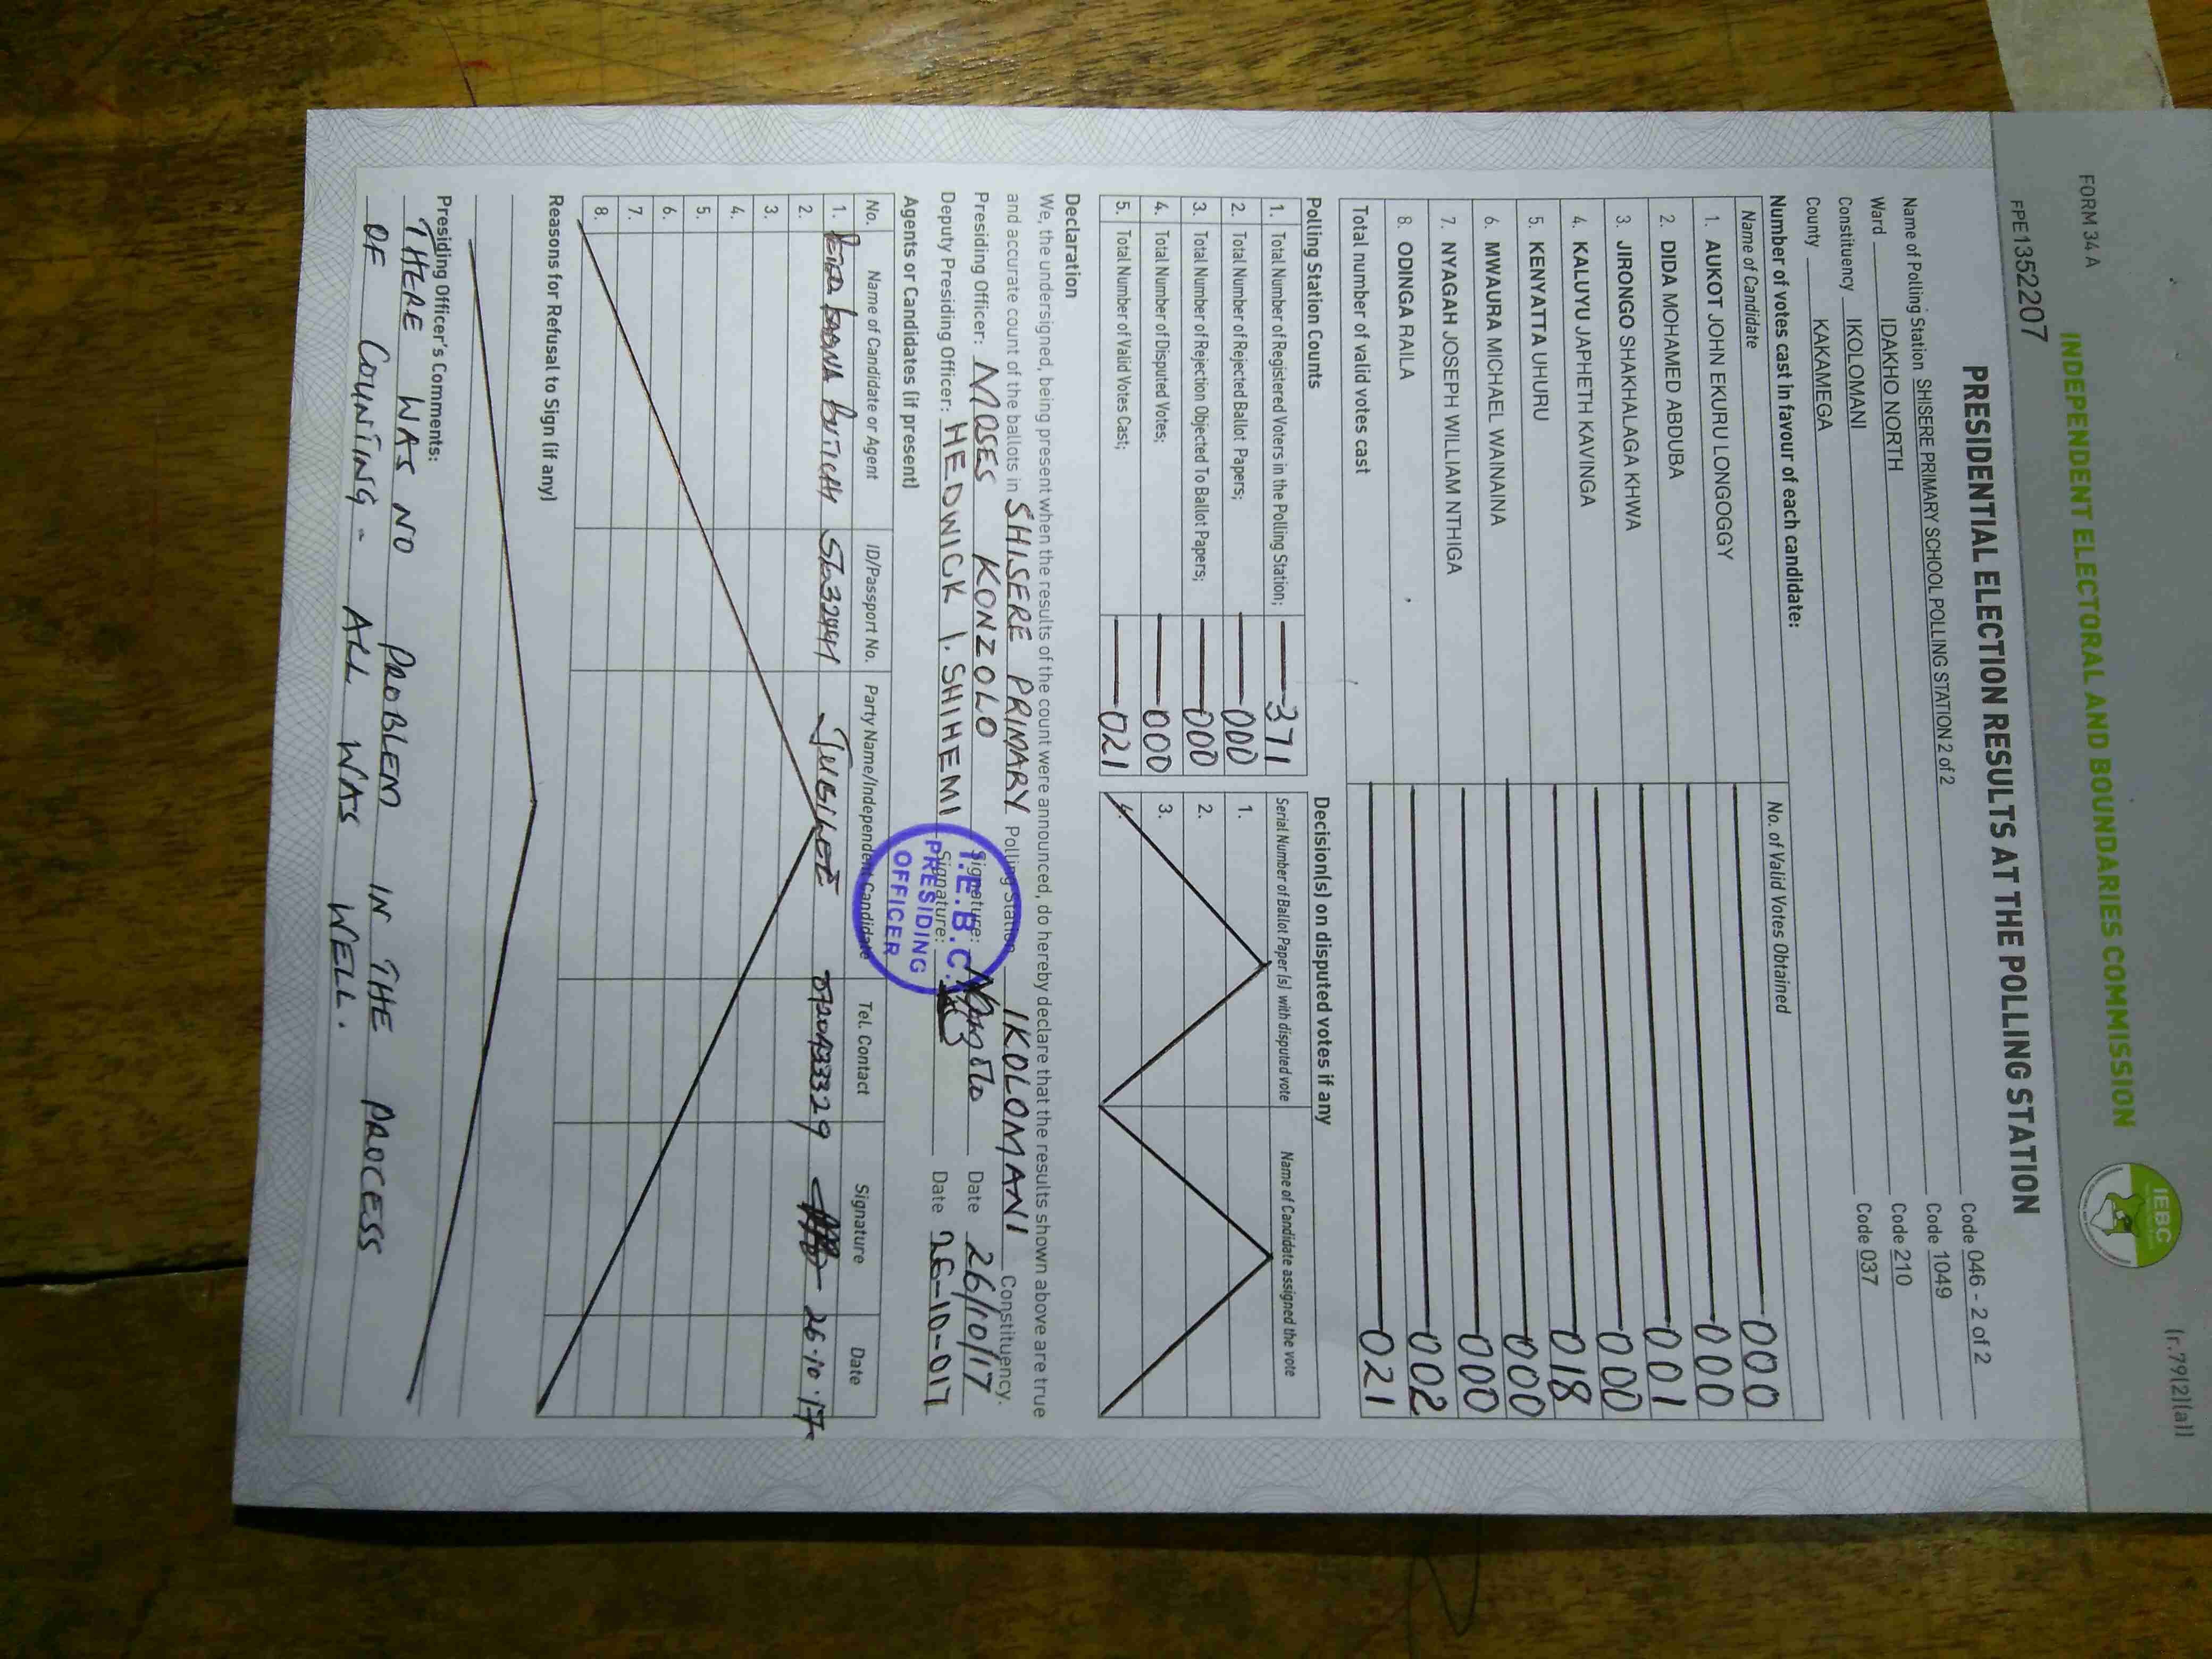 FORM 34 A
(r.79(2)(a))
INDEPENDENT ELECTORAL AND BOUNDARIES COMMISSION
IEBC
FPE1352207
PRESIDENTIAL ELECTION RESULTS AT THE POLLING STATION
Name of Polling Station SHISERE PRIMARY SCHOOL POLLING STATION 2 of 2 Code 046 - 2 of 2
Ward IDAKHO NORTH Code 1049
Constituency IKOLOMANI Code 210
County KAKAMEGA Code 037
Number of votes cast in favour of each candidate:
Name of Candidate No. of Valid Votes Obtained
1. AUKOT JOHN EKURU LONGOGGY 000
2. DIDA MOHAMED ABDUBA 000
3. JIRONGO SHAKHALAGA KHWA 001
4. KALUYU JAPHETH KAVINGA 000
5. KENYATTA UHURU 018
6. MWAURA MICHAEL WAINAINA 000
7. NYAGAH JOSEPH WILLIAM NTHIGA 000
8. ODINGA RAILA 002
Total number of valid votes cast 021
Polling Station Counts
1. Total Number of Registered Voters in the Polling Station; 371
2. Total Number of Rejected Ballot Papers; 000
3. Total Number of Rejection Objected To Ballot Papers; 000
4. Total Number of Disputed Votes; 000
5. Total Number of Valid Votes Cast; 021
Decision(s) on disputed votes if any
Serial Number of Ballot Paper (s) with disputed vote Name of Candidate assigned the vote
1.
2.
3.
4.
Declaration
We, the undersigned, being present when the results of the count were announced, do hereby declare that the results shown above are true
and accurate count of the ballots in SHISERE PRIMARY Polling Station IKOLOMANI Constituency.
Presiding Officer: MOSES KONZOLO Signature: Date 26/10/17
Deputy Presiding Officer: HEDWICK I. SHIHEMI Signature: Date 26-10-017
I.E.B.C.
PRESIDING
OFFICER
Agents or Candidates (if present)
No. Name of Candidate or Agent ID/Passport No. Party Name/Independent Candidate Tel. Contact Signature Date
1. JUBILEE 26.10.17
2.
3.
4.
5.
6.
7.
8.
Reasons for Refusal to Sign (if any)
Presiding Officer's Comments:
THERE WAS NO PROBLEM IN THE PROCESS
OF COUNTING - ALL WAS WELL.